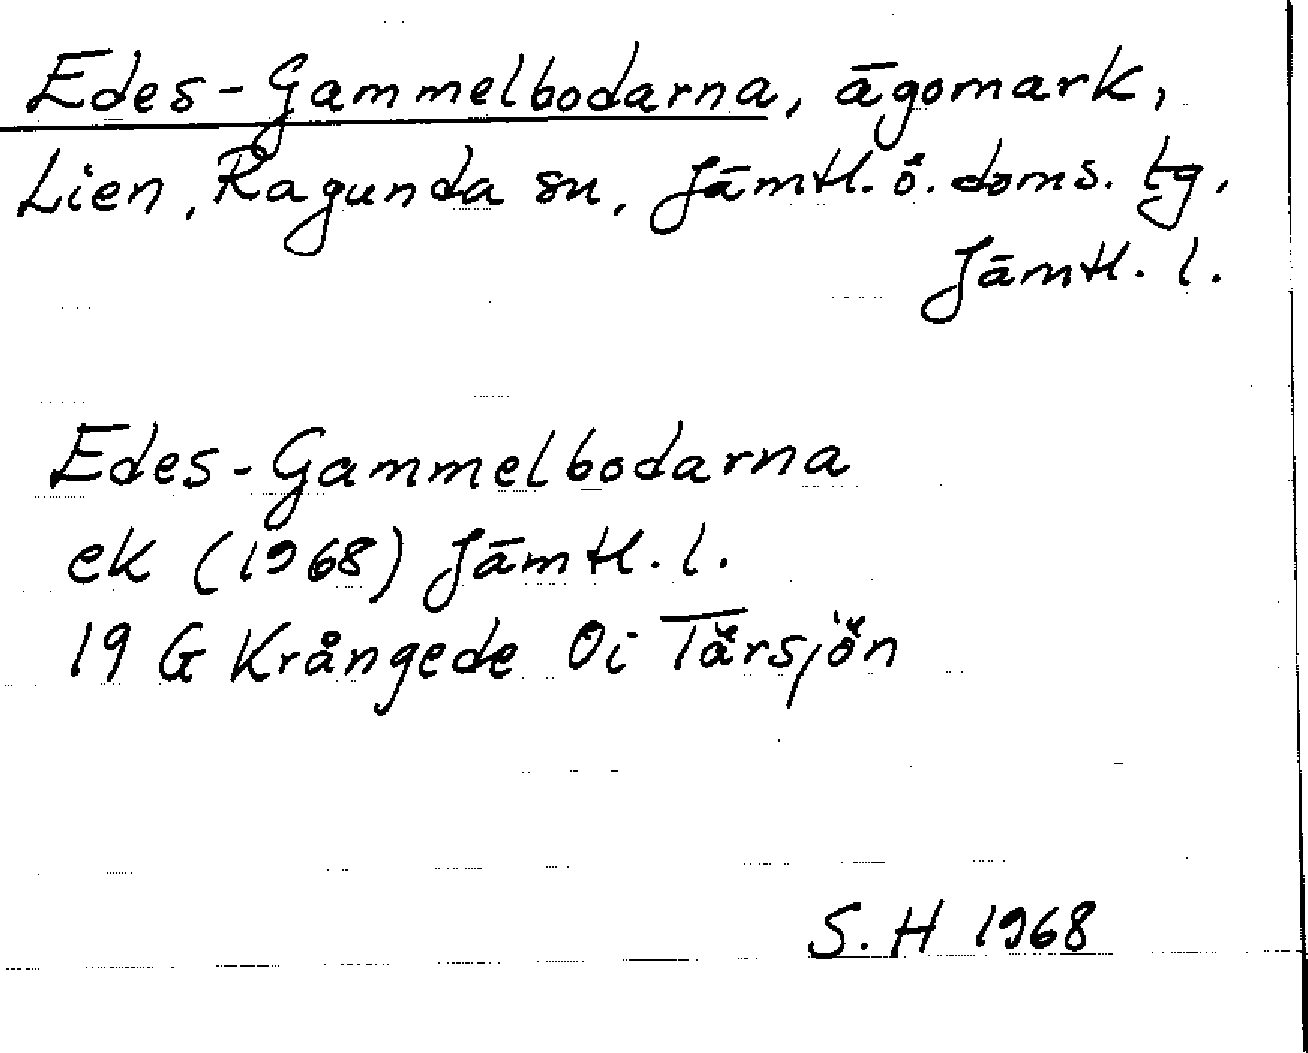 Edes-Gammelbodarna, ägomark,
Lien, Ragunda sn, Jämtl. ö. doms. tg,
Jämtl. l.
Edes-Gammelbodarna
ek (1968) Jämtl. l.
19 G Krångede Oi Tärsjön
S.H 1968